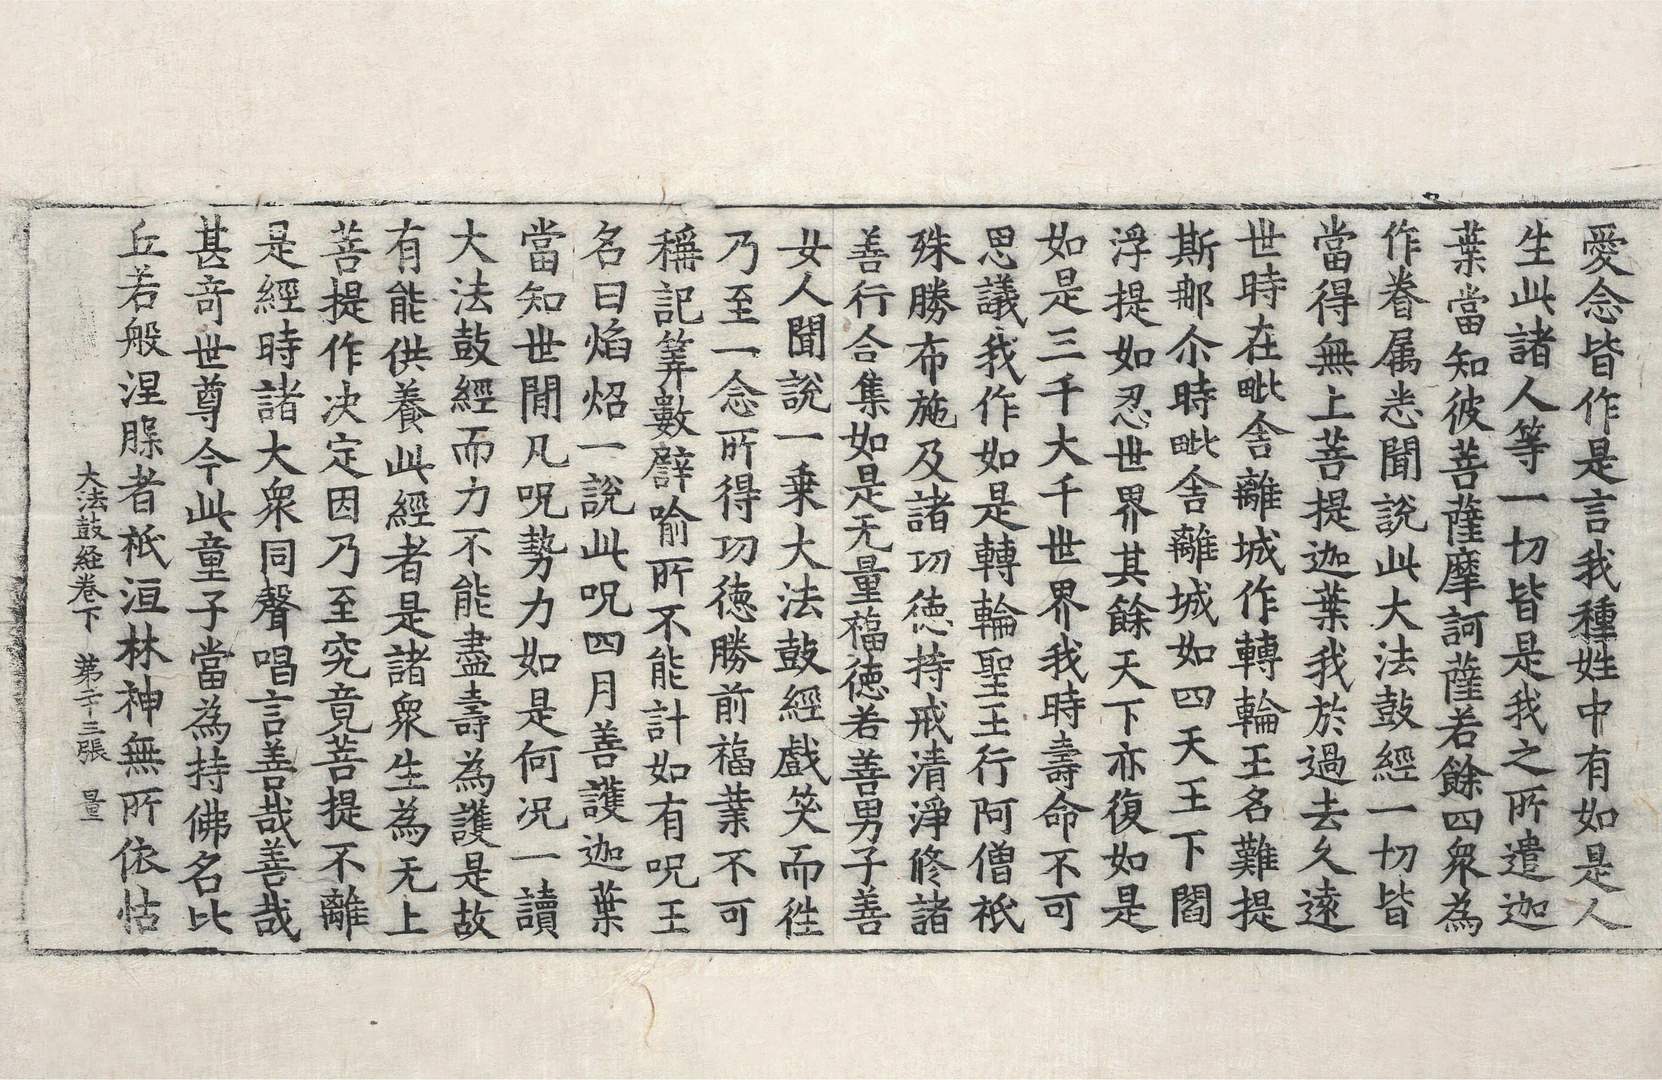 愛念皆作是言我種姓中有如是人
生此諸人等一切皆是我之所遣迦
葉當知彼菩薩摩訶薩若餘四衆為
作眷属悉聞說此大法鼓經一切皆
當得無上菩提迦葉我於過去久遠
世時在毗舍離城作轉輪王名難提
斯那尒時毗舍離城如四天王下閻
浮提如忍世界其餘天下亦復如是
如是三千大千世界我時壽命不可
思議我作如是轉輪聖王行阿僧祇
殊勝布施及諸功徳持戒清淨修諸
善行合集如是无量福徳若善男子善
女人聞說一乗大法鼓經戲笑而徃
乃至一念所得功徳勝前福業不可
稱記筭數譬喻所不能計如有呪王
名曰焰炤一說此呪四月善護迦葉
當知世閒凡呪勢力如是何况一讀
大法鼓經而力不能盡壽為護是故
有能供養此經者是諸衆生為无上
菩提作决定因乃至究竟菩提不離
是經時諸大衆同聲唱言善哉善哉
甚竒世尊今此童子當為持佛名比
丘若般涅槃者祇洹林神無所依怙
大法鼓経卷下 第十三張 量